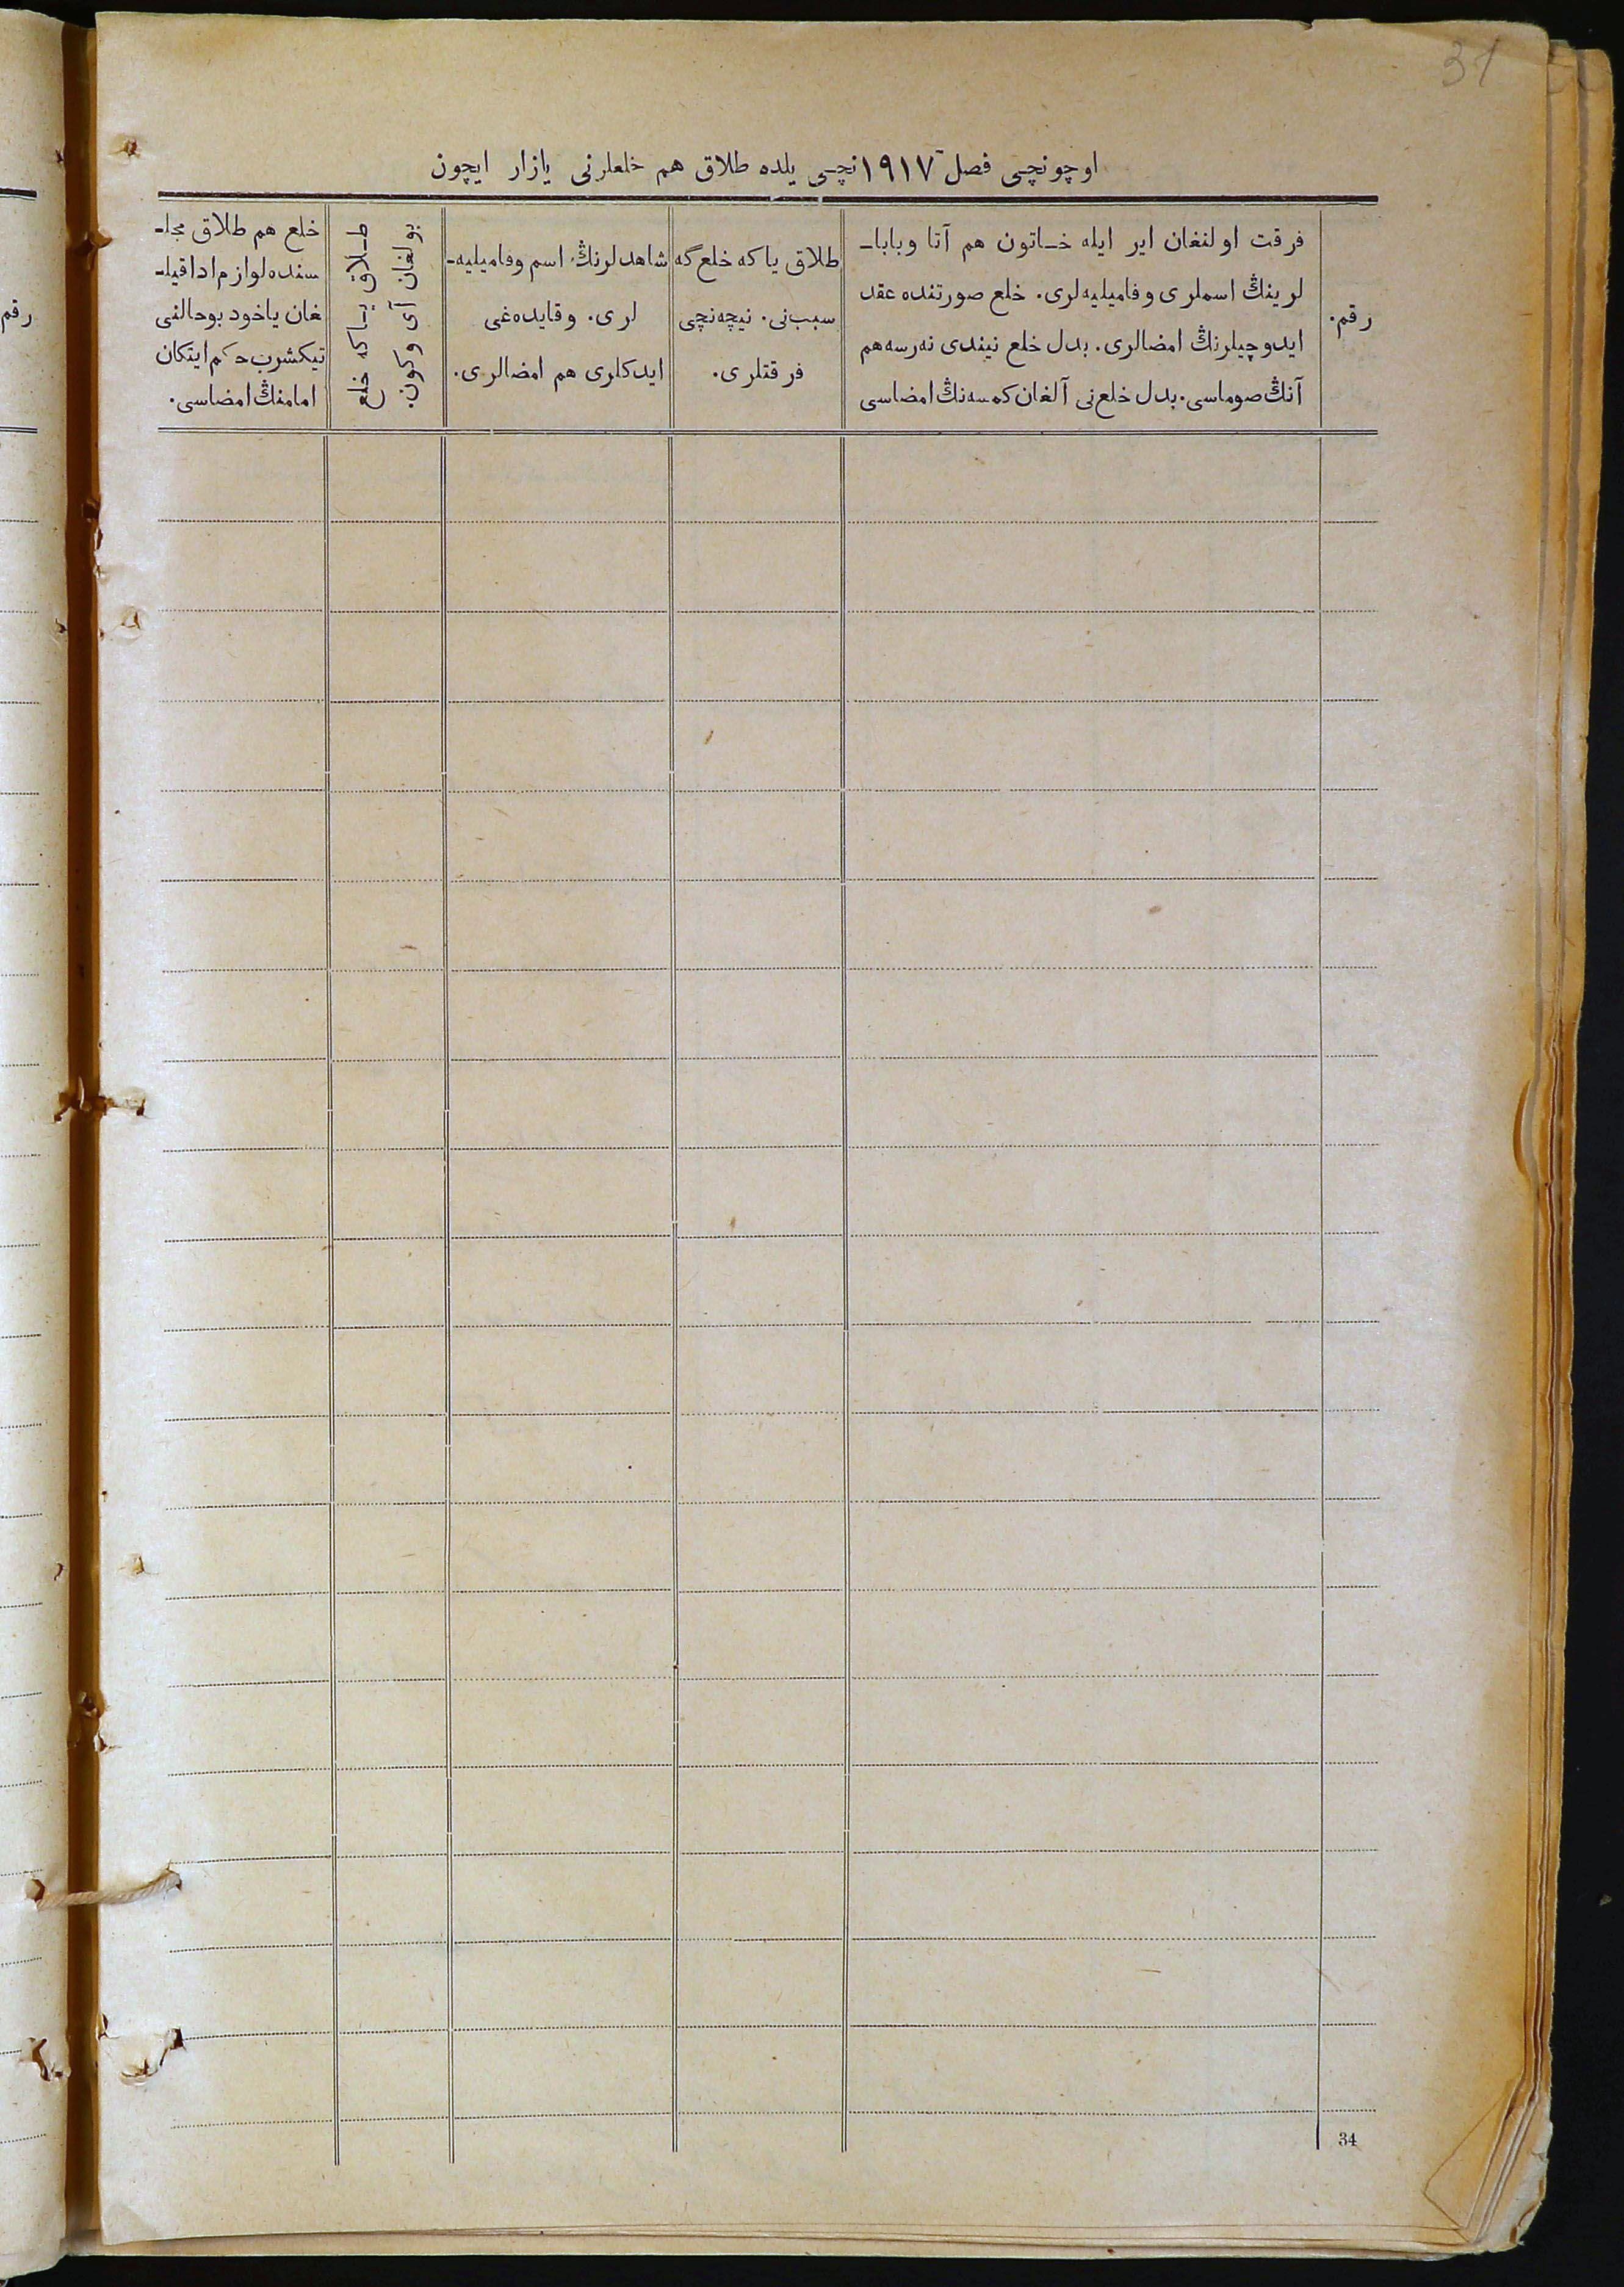 31
اوچونچی فصل ١٩١٧نچی یلده طلاق هم خلعلرنی یازار ایچون
رقم.
فرقت اولنغان ایر ایله خاتون هم آتا وبابا-
لرینڭ اسملری وفامیلیه‌لری. خلع صورتنده عقد
ایدوچیلرنڭ امضالری. بدل خلع نیندی نه‌رسه هم
آنڭ صوماسی. بدل خلع‌نی آلغان کمسه‌نڭ امضاسی
طلاق یاکه خلع گه
سبب‌نی. نیچه‌نچی
فرقتلری.
شاهدلرنڭ اسم وفامیلیه-
لری. وقایده‌غی
ایدکلری هم امضالری.
طلاق یاکه خلع
بولغان آی وکون.
خلع هم طلاق مجلـ
سنده لوازم ادا قیلـ
غان یاخود بوحالنی
تیکشرب حکم ایتکان
امامنڭ امضاسی.
رقم
34